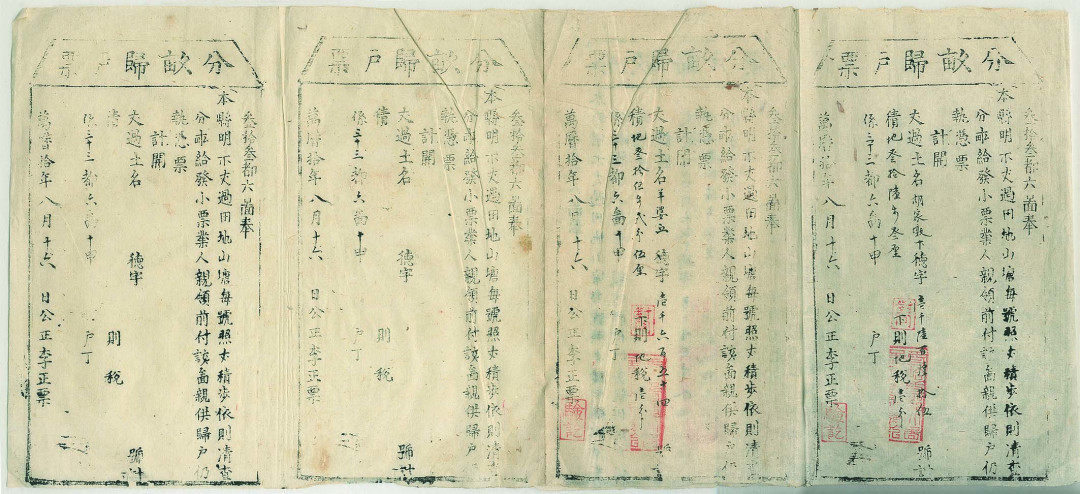 分畝歸戶票
叁拾叁都六啚奉
本縣明示丈過田地山塘每號照丈積步依則清查
分畝給發小票業人親領前付該啚親供歸戶仍
執憑票
計開
丈過土名胡家墩下德字壹千陸百陸拾伍號計
積地叁拾陸步叁厘下則地稅壹分
係三十三都六啚十甲戶丁
萬曆拾年八月十六日公正李正票
驗訖
分畝歸戶票
叁拾叁都六啚奉
本縣明示丈過田地山塘每號照丈積步依則清查
分畝給發小票業人親領前付該啚親供歸戶仍
執憑票
計開
丈過土名羊婆丘德字壹千六百五十四號
積地叁拾伍步弍分伍厘下則地稅壹分
係三十三都六啚十甲戶丁
萬曆拾年八月十六日公正李正票
驗訖
分畝歸戶票
叁拾叁都六啚奉
本縣明示丈過田地山塘每號照丈積步依則清查
分畝給發小票業人親領前付該啚親供歸戶仍
執憑票
計開
丈過土名德字號計
積則稅
係三十三都六啚十甲戶丁
萬曆拾年八月十六日公正李正票
分畝歸戶票
叁拾叁都六啚奉
本縣明示丈過田地山塘每號照丈積步依則清查
分畝給發小票業人親領前付該啚親供歸戶仍
執憑票
計開
丈過土名德字號計
積則稅
係三十三都六啚十甲戶丁
萬曆拾年八月十六日公正李正票